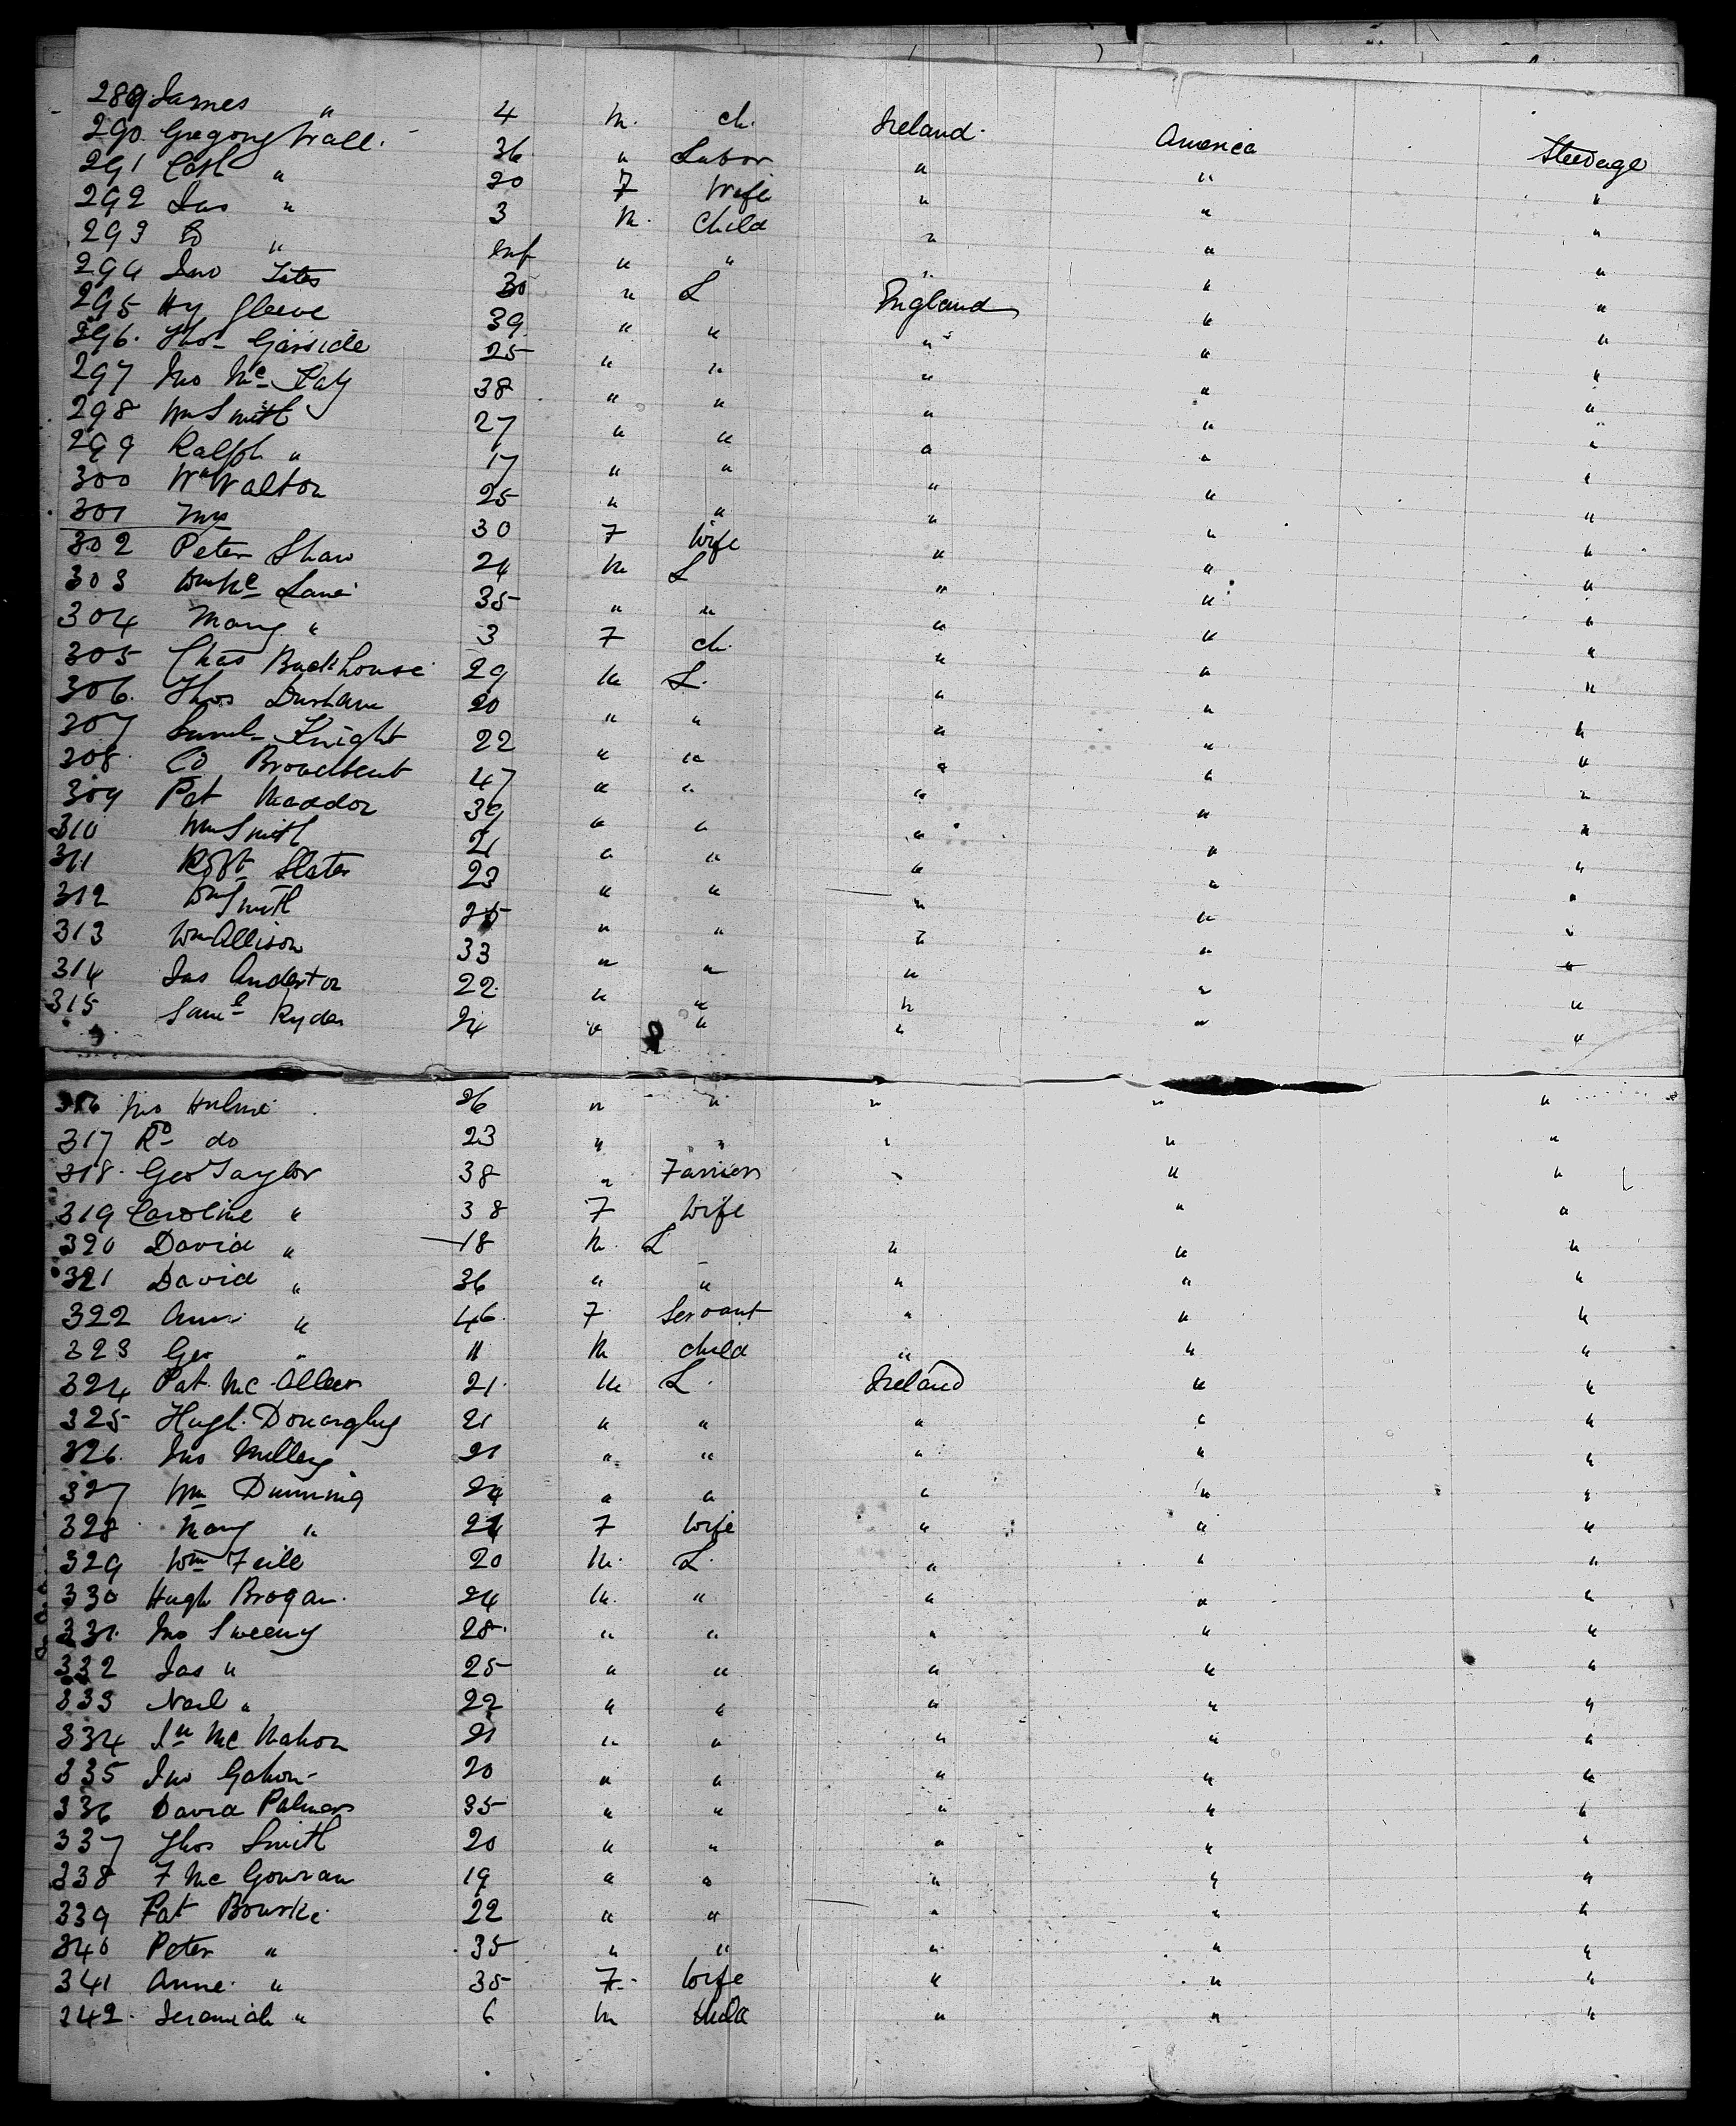 289 James " 4 M. ch. Ireland. America Steerage
290. Gregory Wall. 36 " Labor " " "
291 Cath " 30 F Wife " " "
292 Jas " 3 M. Child " " "
293 " Inf " " " " "
294 Jno 30 " L England " "
295 Hy Gleeve 39 " " " " "
296. Thos Garside 25 " " " " "
297 Jno Mc Kay 38 " " " " "
298 Wm Smith 27 " " " " "
299 Ralph " 17 " " " " "
300 Wm Walton 25 " " " " "
301 Mrs 30 F Wife " " "
302 Peter Shaw 24 M L " " "
303 Wm Mc Lane 35 " " " " "
304 Mary " 3 F ch. " " "
305 Chas Backhouse 29 M L. " " "
306. Thos Durham 20 " " " " "
307 Saml Knight 22 " " " " "
308. Ed Broadbent 47 " " " " "
309 Pat Maddox 39 " " " " "
310 Wm Smith 21 " " " " "
311 Robt Slater 23 " " " " "
312 Wm Smith 25 " " " " "
313 Wm Allison 33 " " " " "
314 Jas Anderton 22 " " " " "
315 Saml Ryder 24 " " " " "
316 Jno Hulme 26 " " " " "
317 Rd do 23 " " " " "
318. Geo Taylor 38 " Farrier " " "
319 Caroline " 38 F Wife " "
320 David " 18 M. L " " "
321 David " 36 " " " " "
322 Ann " 46 F Servant " " "
323 Geo " 11 M child " " "
324 Pat Mc Alleer 21. M L. Ireland " "
325 Hugh Donarghy 21 " " " " "
326. Jno Mullery 21 " " " " "
327 Wm Dunning 24 " " " " "
328 Mary " 24 F Wife " " "
329 Wm Feile 20 M. L. " " "
330 Hugh Brogan. 24 M. " " " "
331. Jno Sweeny 28. " " " " "
332 Jas " 25 " " " " "
333 Neil " 22 " " " " "
334 Jn Mc Mahon 21 " " " " "
335 Jno Gahon 20 " " " " "
336 David Palmer 35 " " " " "
337 Thos Smith 20 " " " " "
338 F Mc Gowran 19 " " " " "
339 Pat Bourke 22 " " " " "
340 Peter " 35 " " " " "
341 Anne " 35 F. Wife " " "
342. Jeramiah " 6 M Child " " "